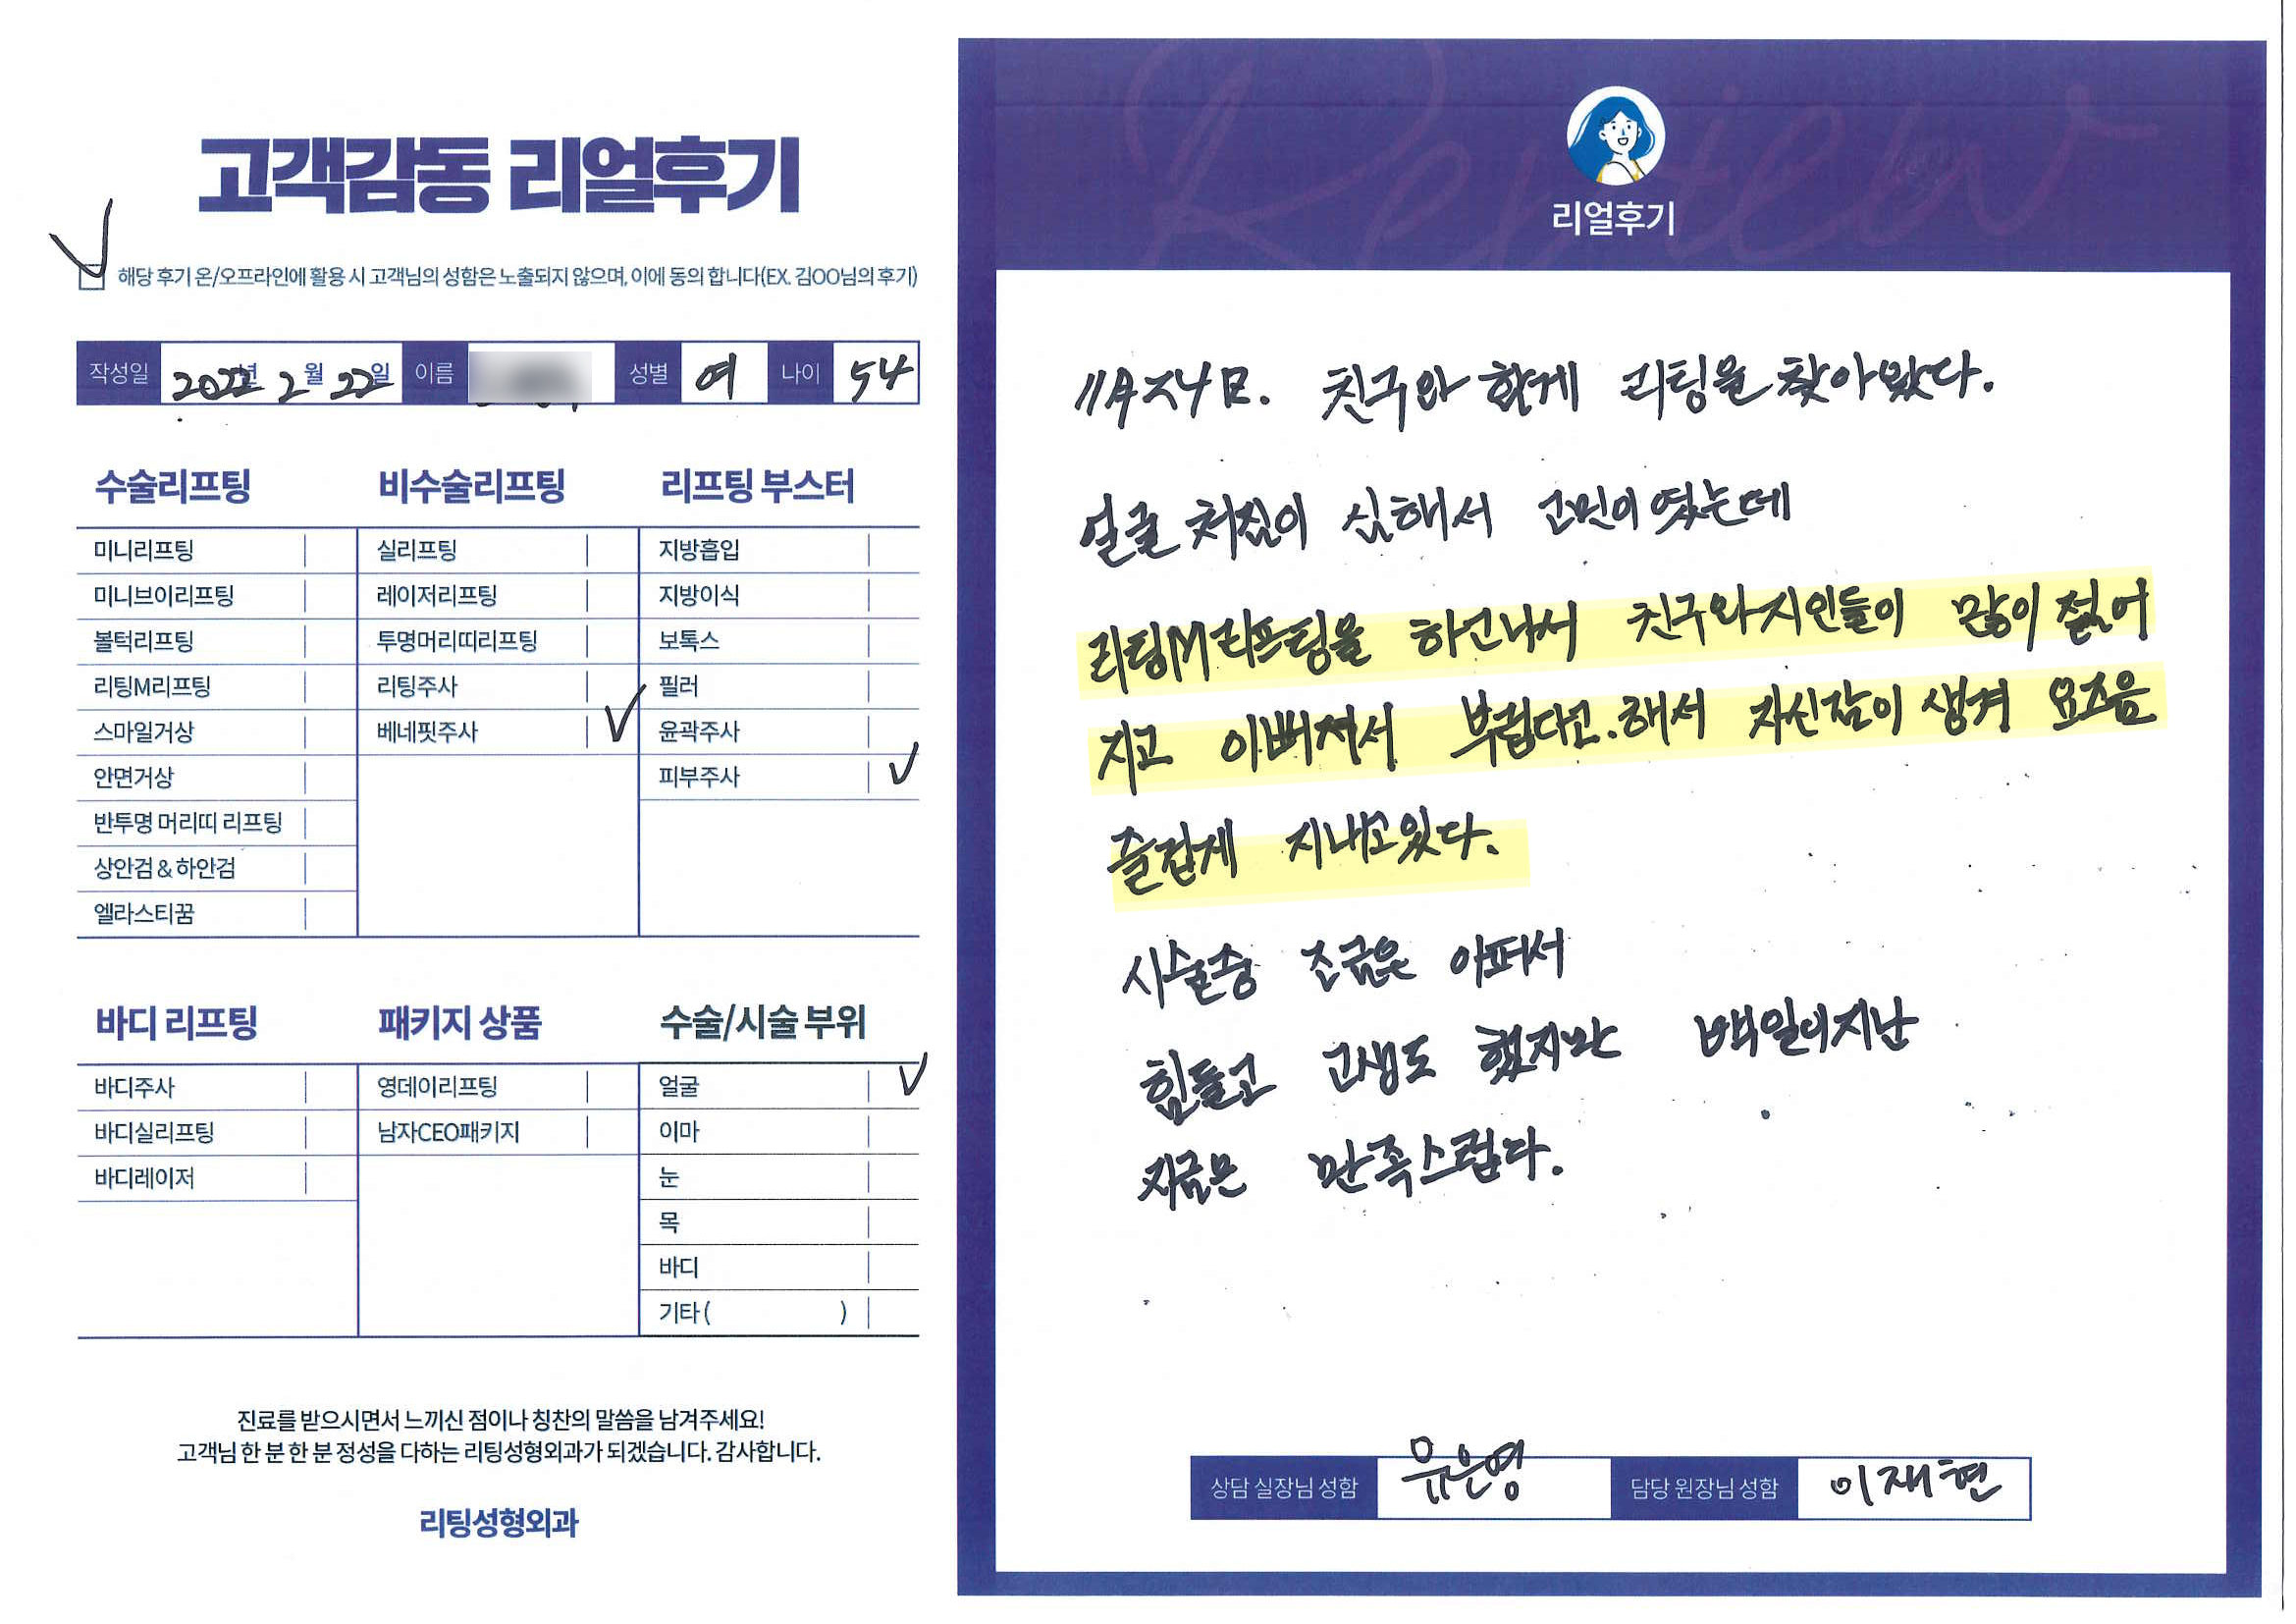 고객감동 리얼후기
해당 후기 온/오프라인에 활용 시 고객님의 성함은 노출되지 않으며, 이에 동의 합니다(EX. 김OO님의 후기)
작성일 2022년 2월 22일 이름 성별 여 나이 54
수술리프팅
미니리프팅
미니브이리프팅
볼턱리프팅
리팅M리프팅
스마일거상
안면거상
반투명 머리띠 리프팅
상안검 & 하안검
엘라스티꿈
비수술리프팅
실리프팅
레이저리프팅
투명머리띠리프팅
리팅주사
베네핏주사
리프팅 부스터
지방흡입
지방이식
보톡스
필러
윤곽주사
피부주사
바디 리프팅
바디주사
바디실리프팅
바디레이저
패키지 상품
영데이리프팅
남자CEO패키지
수술/시술 부위
얼굴
이마
눈
목
바디
기타 ( )
진료를 받으시면서 느끼신 점이나 칭찬의 말씀을 남겨주세요!
고객님 한 분 한 분 정성을 다하는 리팅성형외과가 되겠습니다. 감사합니다.
리팅성형외과
Review
리얼후기
11月24日. 친구와 함께 리팅을 찾아왔다.
얼굴 처짐이 심해서 고민이였는데
리팅M리프팅을 하고나서 친구와지인들이 많이 젊어
지고 이뻐져서 부럽다고.해서 자신감이 생겨 요즈음
즐겁게 지내고있다.
시술중 조금은 아퍼서
힘들고 고생도 했지만 백일이지난
지금은 만족스럽다.
상담 실장님 성함 유은영 담당 원장님 성함 이재현